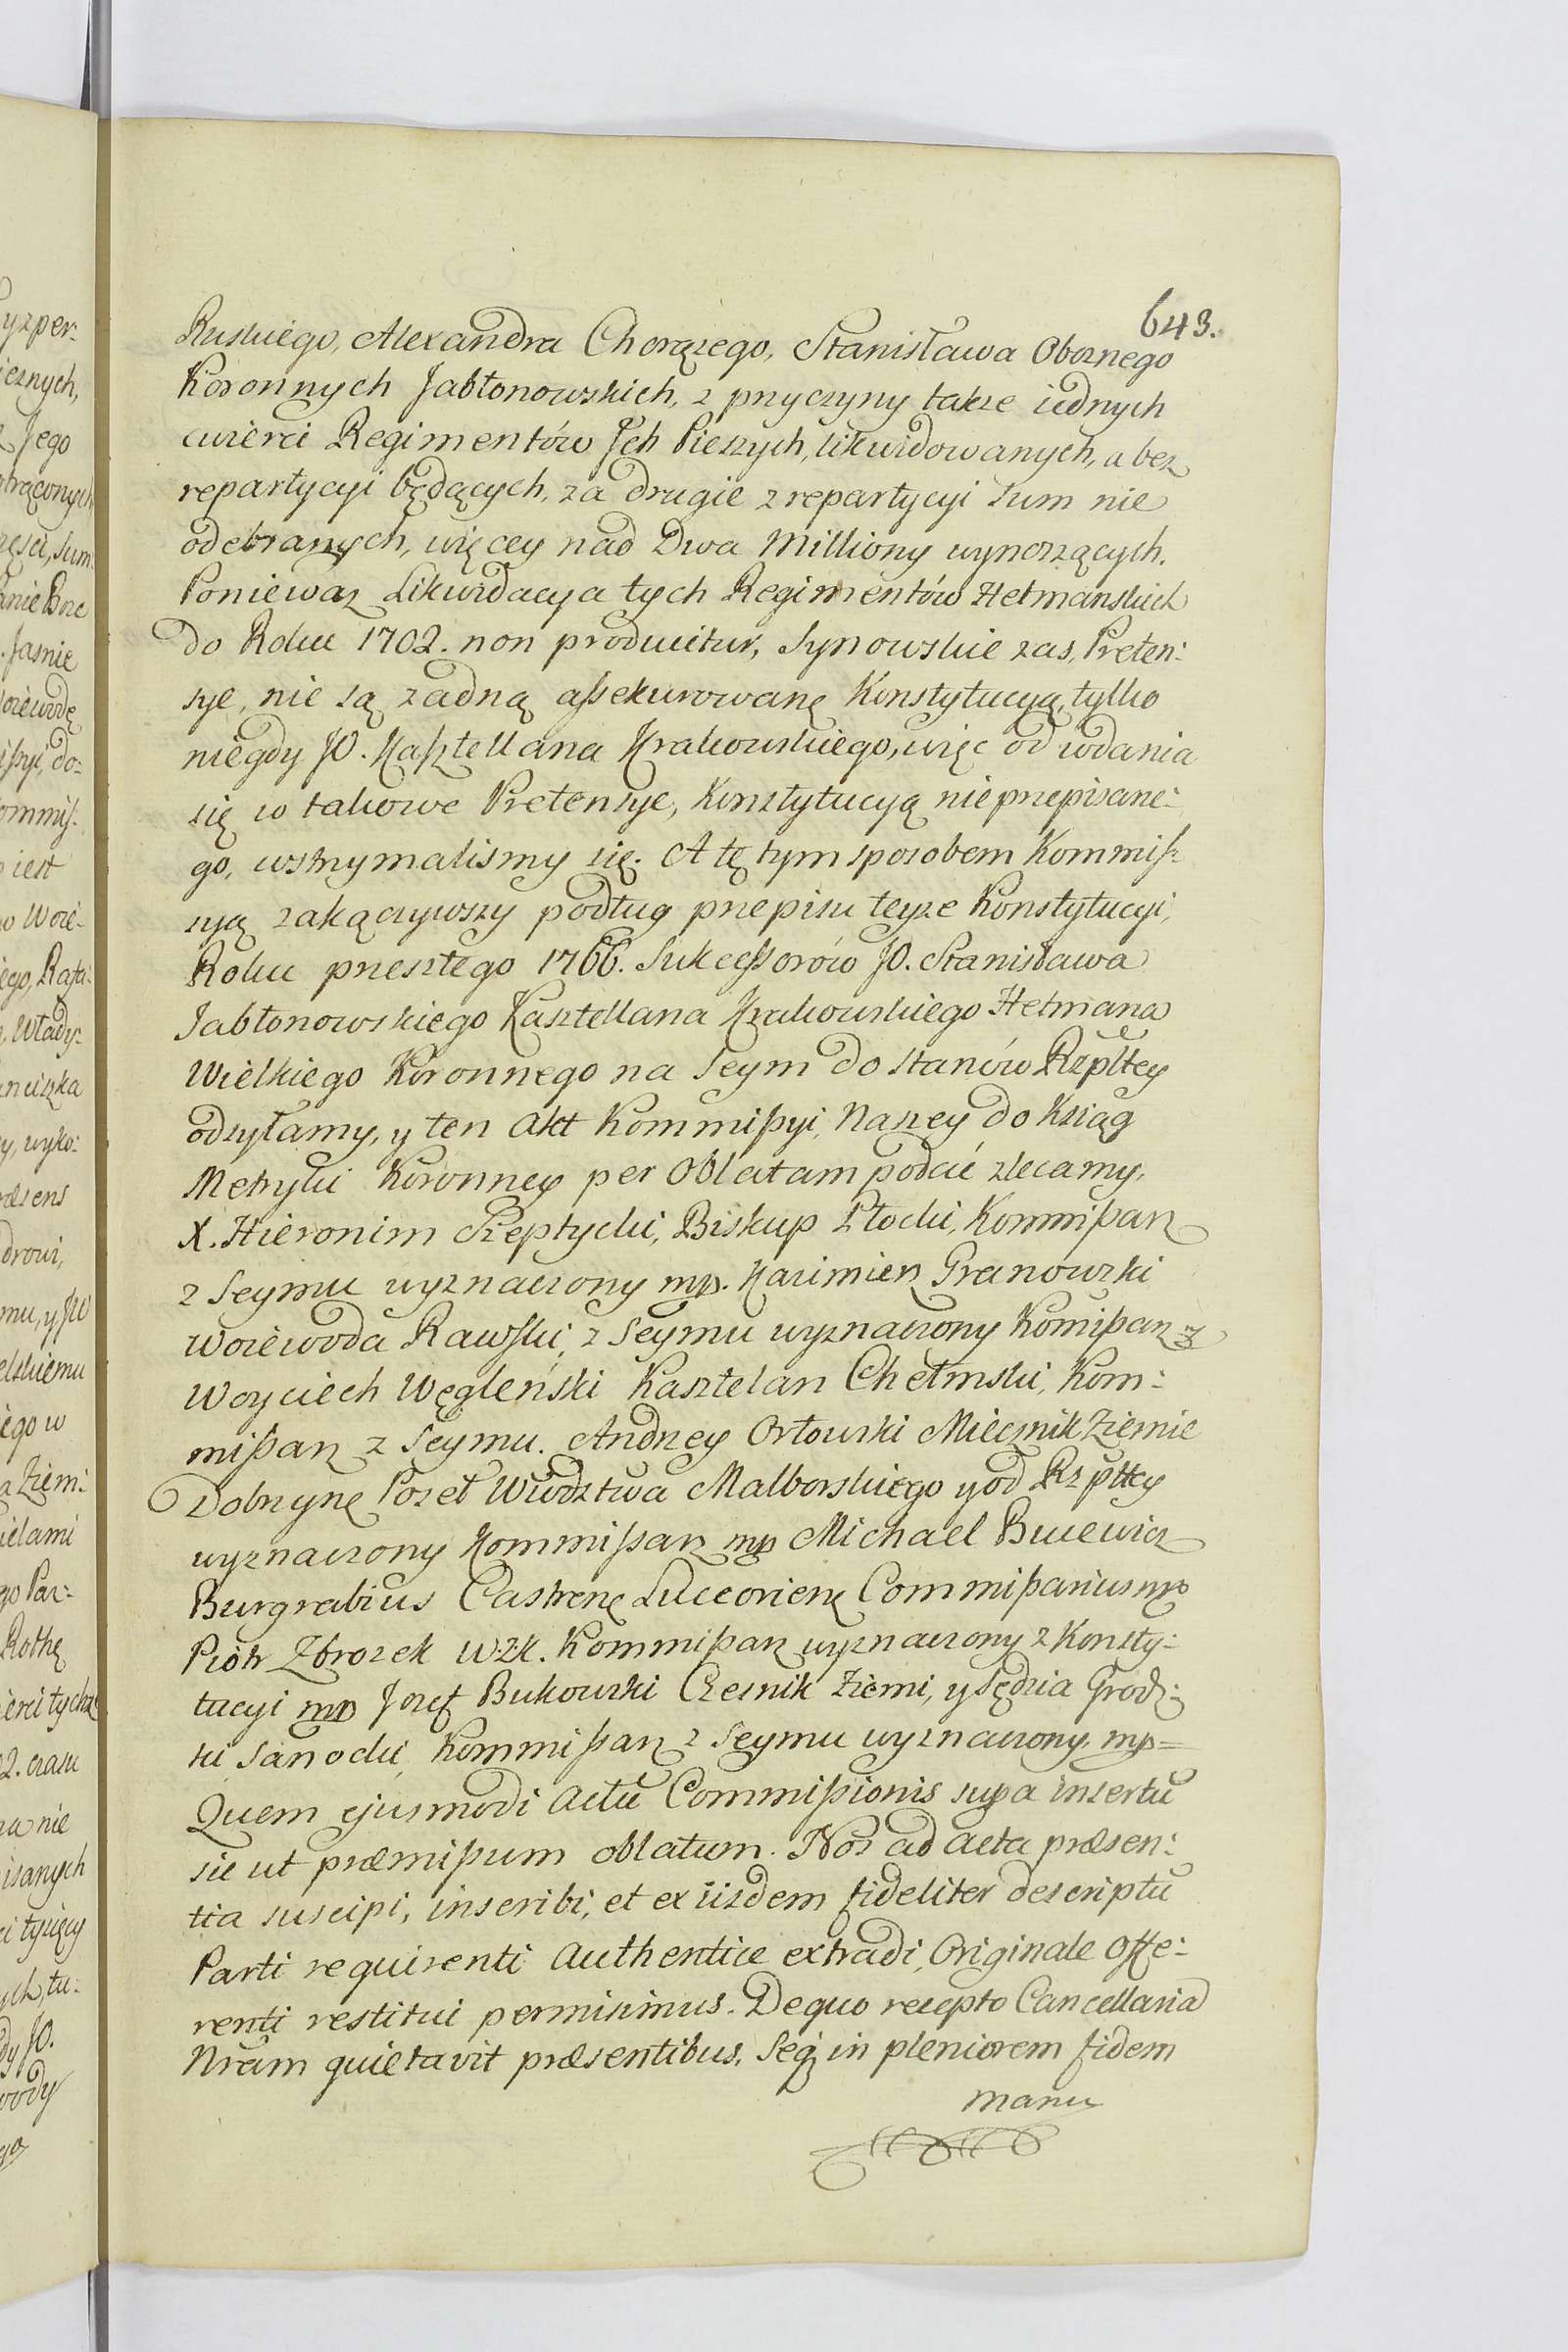 643.
Ruskiego, Alexandra Chorązego, Stanisława Oboznego
Koronnych Jabłonowskich, z przyczyny takze iednych
cwierci Regimentów Jch Pieszych, likwidowanych, a bez
repartycyi będących, za drugie z repartycyi sum nie
odebranych, więcey nad Dwa Milliony wynoszących.
Poniewaz Likwidacya tych Regimentów Hetmanskich
do Roku 1702. non producitur, Synowskie zas, Preten:
sye, nie są zadną assekurowanę Konstytucyą, tylko
niegdy JO. Kasztellana Krakowskiego, więc od wdania
się w takowe Pretensye, Konstytucyą nieprzepisane:
go, wstrzymalismy się. A tę tym sposobem Kommiss:
syą zakączywszy podług przepisu teyze Konstytucyi,
Roku przeszłego 1766. Sukcessorów JO. Stanisława
Jabłonowskiego Kasztellana Krakowskiego Hetmana
Wielkiego Koronnego na Seym do stanów Rzpltey
odsyłamy, y ten Akt Kommissyi, Naszey do Xsiąg
Metryki Koronney per Oblatam podać zlecamy.
X. Hieronim Szeptycki, Biskup Płocki, Kommissarz
z Seymu wyznaczony mp. Kazimierz Granowski
Woiewoda Rawski, z Seymu wyznaczony Komissarz
Woyciech Węgleński Kasztelan Chełmski, Kom:
missarz z Seymu. Andrzey Orłowski Miecznik Ziemie
Dobrzynę Poseł Wwdztwa Malborskiego y od Rzpltey
wyznaczony Kommissarz mp Michael Bucewicz
Burgrabius Castrenę Luceorienę Commissarius mp
Piotr Zbrozek W.Z.K. Kommissarz wyznaczony z Konsty:
tucyi mp Jozef Bukowski Czesnik Ziemi, y Sędzia Grodz:
ki Sanocki, Kommissarz z Seymu wyznaczony. mp=
Quem ejusmodi Actũ Commissionis supa insertũ
sic ut præmissum oblatum. Nos ad Acta præsen:
tia suscipi, inscribi, et ex iisdem fideliter descriptũ
Parti requirenti Authentice extradi, Originale Offe:
renti restitui permisimus. De quo recepto Cancellaria
Nram quietavit præsentibus. Seq in pleniorem fidem
manu